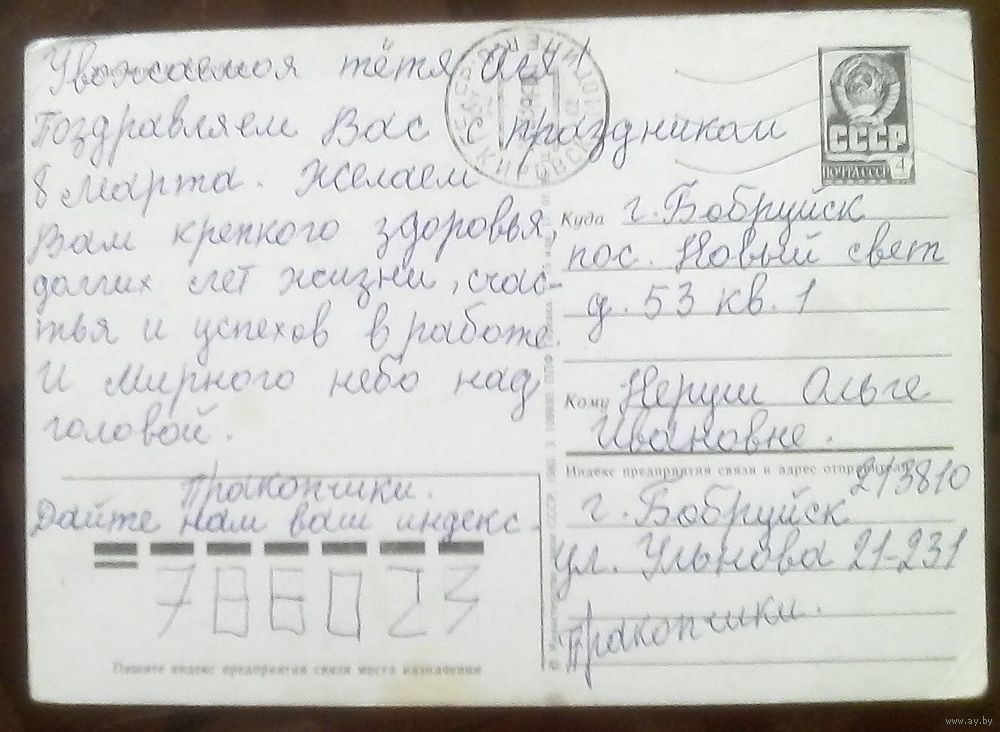 Уважаемая тётя Оля!
Поздравляем Вас с праздником
8 Марта. Желаем
Вам крепкого здоровья,
долгих лет жизни, счас-
тья и успехов в работе.
И мирного небо над
головой.
Пракопчики.
Дайте нам ваш индекс.
786023
Пишите индекс предприятия связи места назначения
СССР
ПОЧТА СССР
4
Куда г. Бобруйск
пос. Новый свет
д. 53 кв. 1
Кому Неруш Ольге
Ивановне.
Индекс предприятия связи и адрес отправителя
213810
г. Бобруйск
ул. Ульнова 21-231
Пракопчики.
www.ay.by